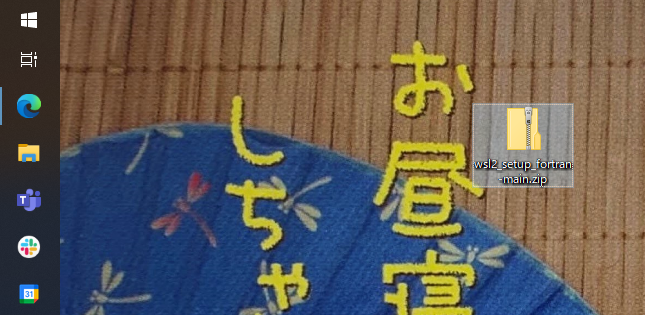 お昼寝
しちゃ
wsl2_setup_fortran
-main.zip
31